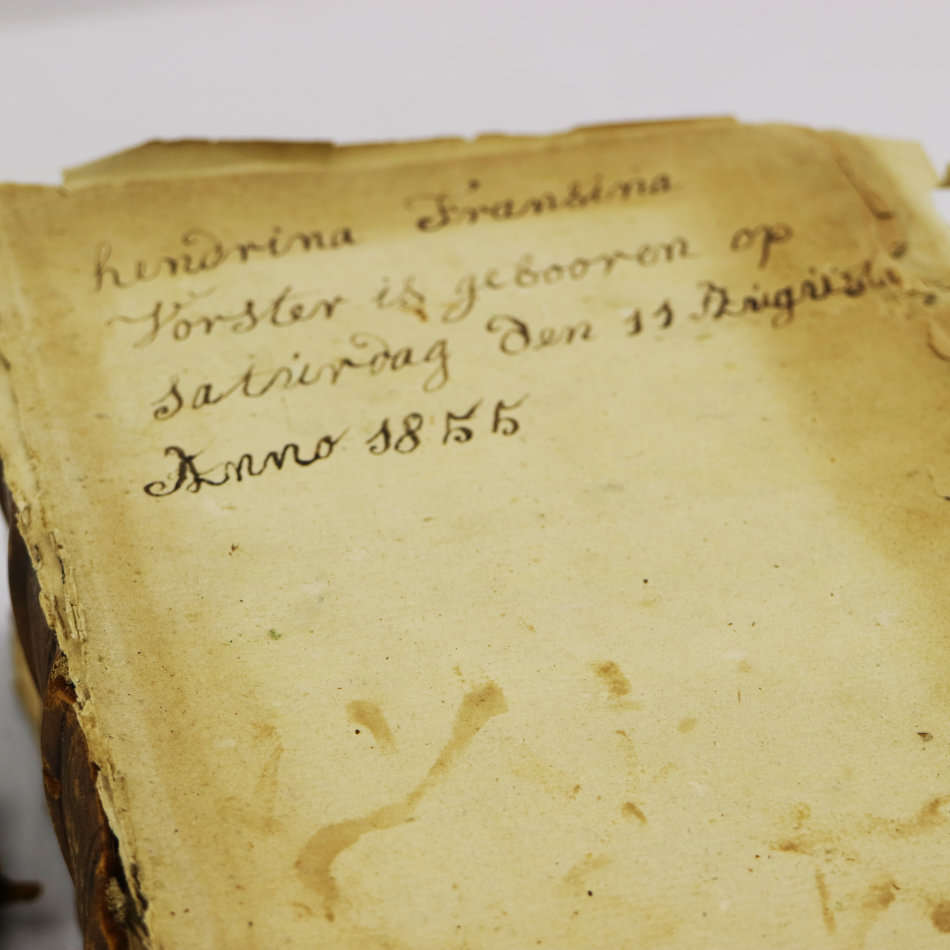 hendrina Fransina
Vorster is gebooren op
saturdag den 11 Augusti
Anno 1855